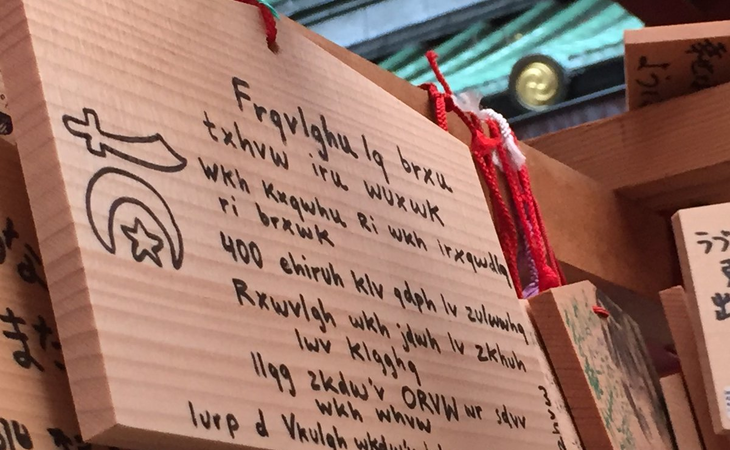 Frqvlghu lq brxu
txhvw iru wuxwk
wkh Kxqwhu Ri wkh irxqwdlq
ri brxwk
400 ehiruh klv qdph lv zulwwhq
Rxwvlgh wkh jdwh lv zkhuh
lwv Klgghq
Ilqg zkdw'v ORVW wr sdvv
wkh whvw
Iurp d Vkulqh